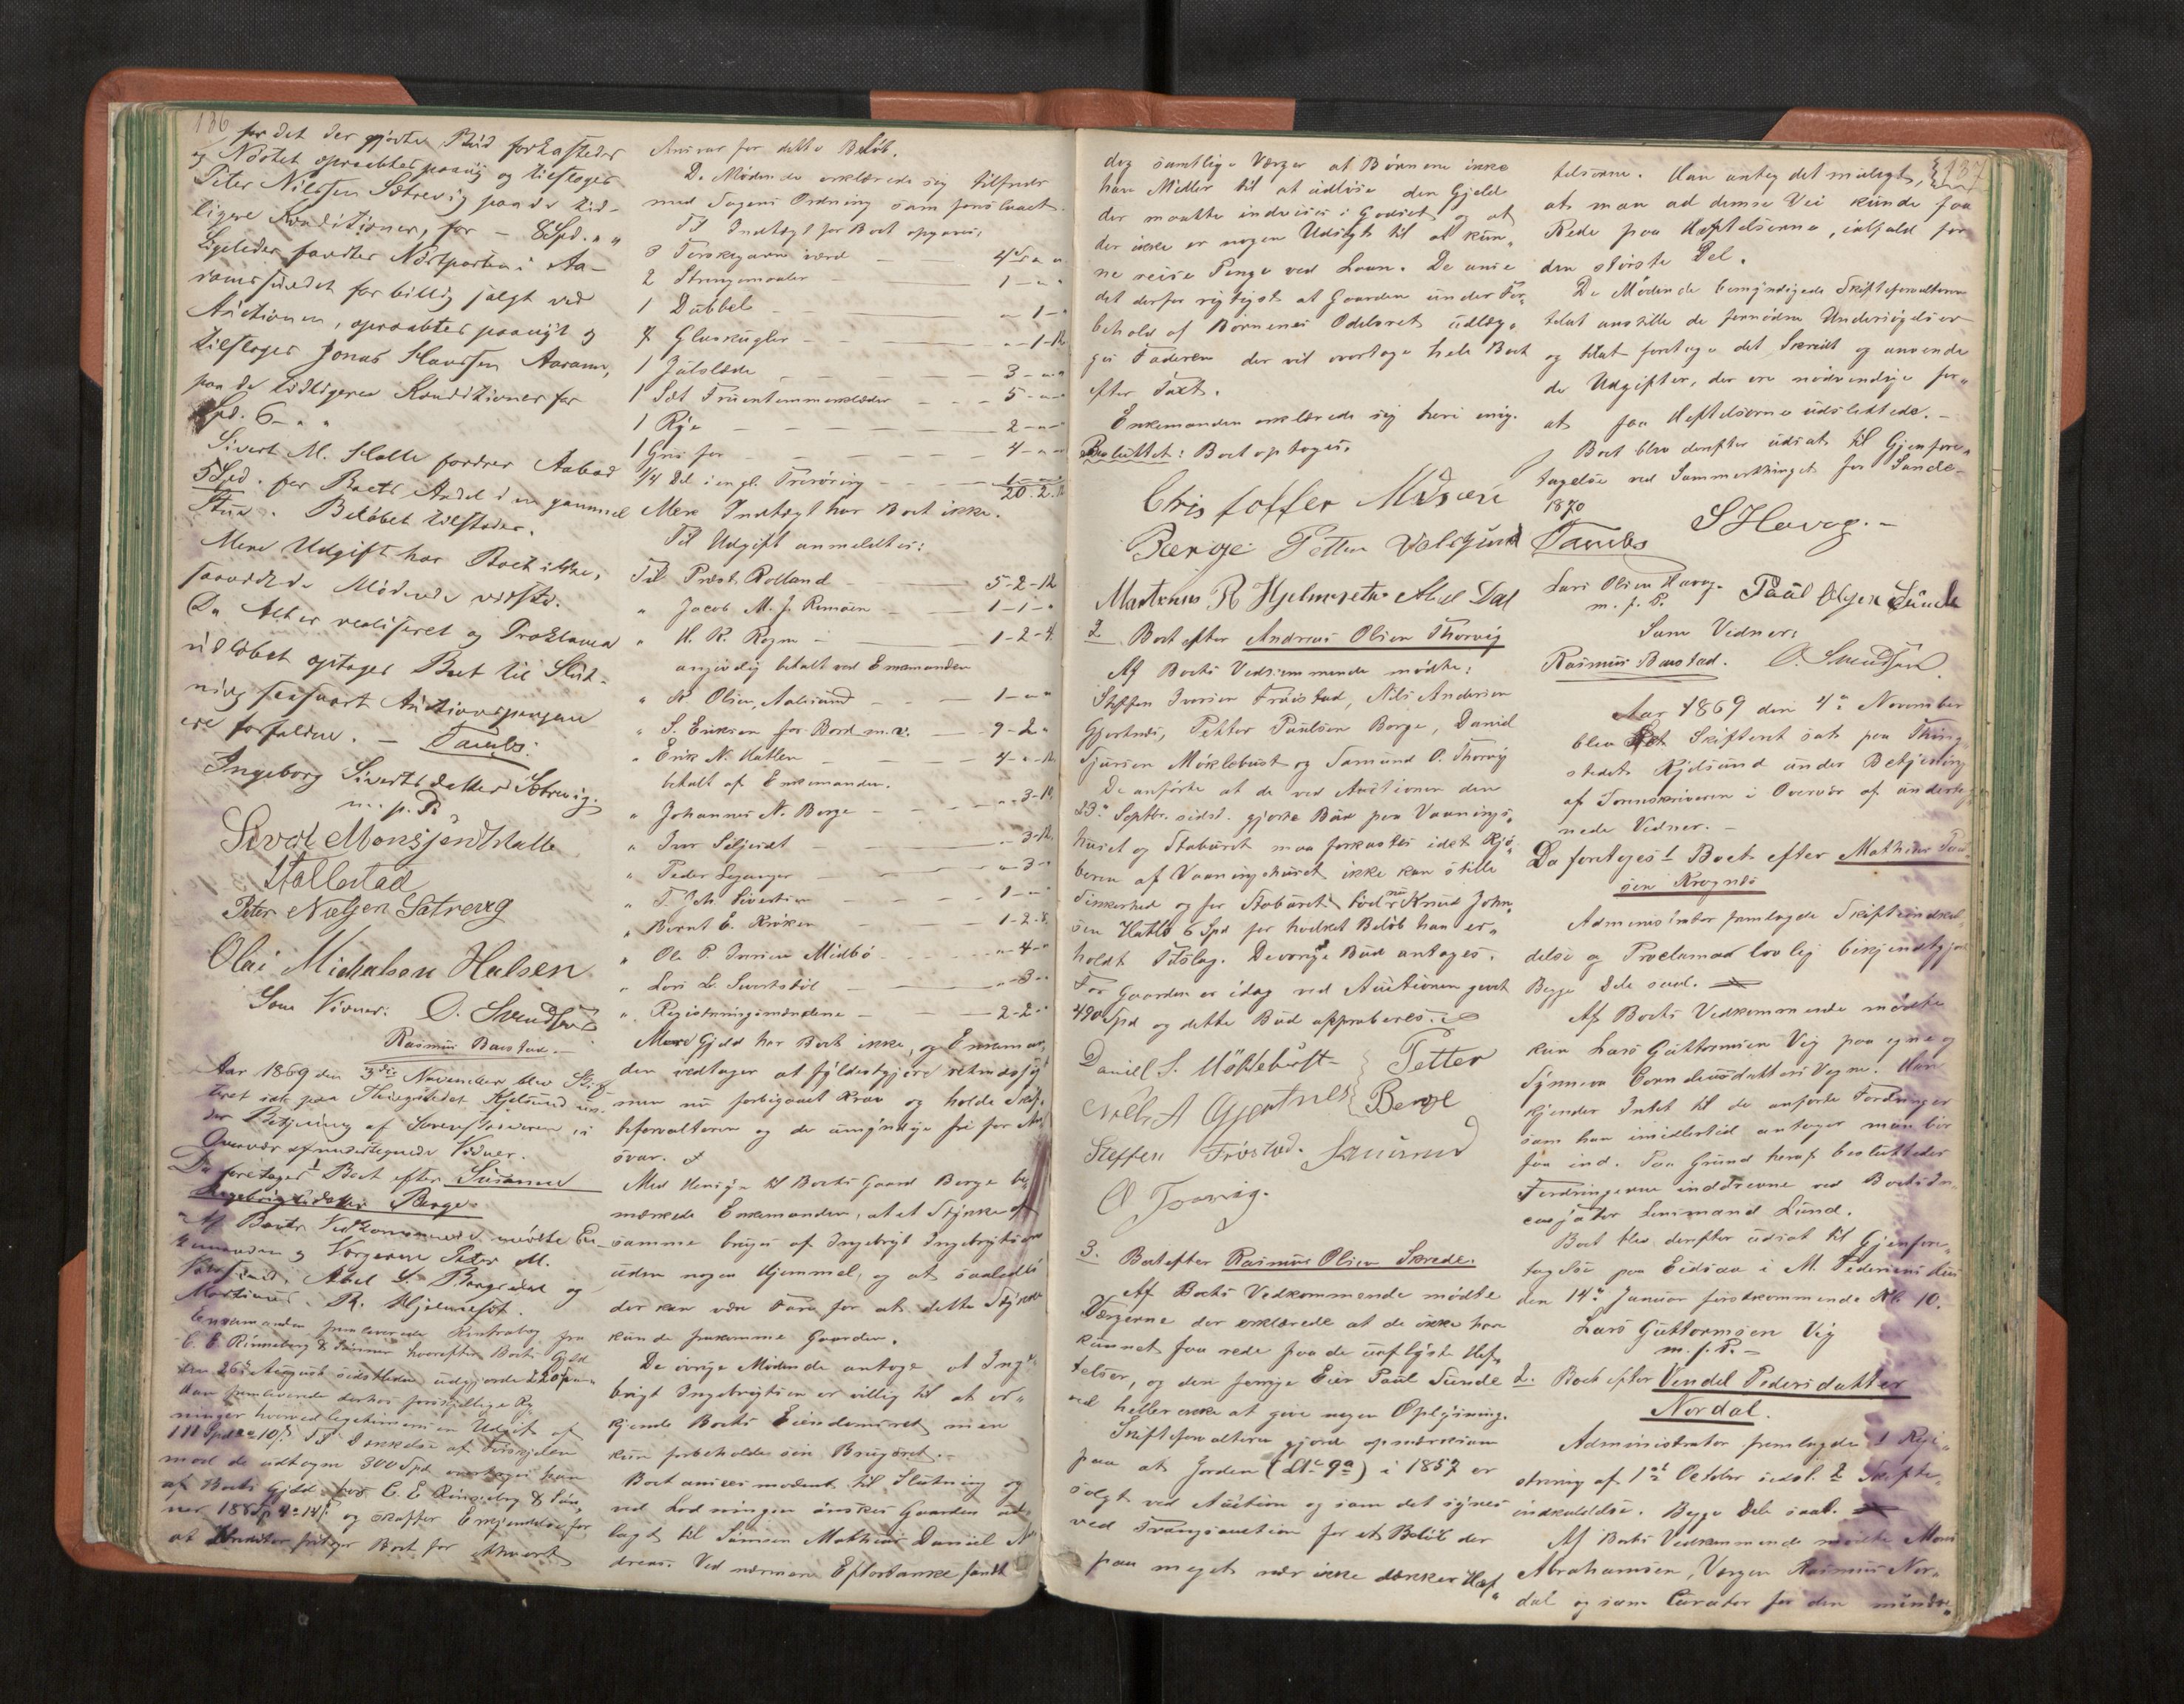 186
for det der gjorte Bud forkastedes
og Nøstet opraabtes paany og tilsloges
Peter Nilssen Sætrevig paa de tid-
ligere Konditioner, for - 8 Spd. " "
Ligeledes fandtes Nøstparten i Aa-
ramsundet for billig solgt ved
Auctionen, opraabtes paanyt og
tilsloges Jonas Hanssen Aaram,
paa de tidligere Konditioner for
Spd. 6 - " "
Sivert M. Halle fordrer Aabod
5 Spd. for Boets Andel i en gammel
Stue. Beløbet tilstodes.
Mere Udgift har Boet ikke,
saavidt de Mødende vidste.
Da Alt er realiseret og Proklama
udløbet optages Boet til Slut-
ning saasnart Auctionspengene
ere forfaldne. - Taubs:
Ingeborg Sivertsdatter Sætrevig.
m. p. P.
Sivert Monsen Halle
Hallestad
Peter Nielsen Sætrevig
Olai Michalsen Hulsen
Som Vidner: O. Svendsen
Rasmus Baustad. -
Aar 1869 den 3die November blev Skif-
teret sat paa Thingstedet Kjelsund un-
der Betjening af Sorenskriveren i
Overvær af undertegnede Vidner.
Da foretoges 1 Boet efter Susanne
Ingebrigtsdatter Berge.
Af Boets Vedkommende mødte En-
kemanden og Værgerne Peter M.
Abel L. Bergsdal og
Martinus R. Hjelmeset.
Enkemanden fremleverede Kontrabog fra
C. E. Rønneberg & Sønner hvorefter Boets Gjeld
den 26 August sidstleden udgjorde
Han fremleverede derhos forskjellige Reg-
ninger hvorved legitimeres en Udgift af
111 Spd 2 10 ß. Til Dækkelse af Forskjellen
mod de udtagne 300 Spd overtages han
af Boets Gjeld hos C. E. Rønneberg & Søn-
ner 188 Sp 4 14 ß og skaffer Erkjendelse for
at Kreditor fritager Boet for ethvert
Ansvar for dette Beløb.
De Mødende erklærede sig tilfreds
med Sagens Ordning som foreslaaet.
Til Indtægt for Boet opgaves:
3 Torskegarn værd - 4 " "
2 - 1 - " "
1 Dubbel - " - 1 - "
4 Glaskugler - " - 1 - 12
1 Julslæde - 3 - " "
1 Sæt Fruentemmerklæder - 5 - " "
1 Rye - 2 - " "
1 Gris for - 4 - " "
1/4 Del i en gl. Treroring - 1 - " "
20. 2. 12
Mere Indtægt har Boet ikke.
Til Udgift anmeldtes:
Til Præst Rolland - 5 - 2 - 12
" Jacob M. J. Remøen - 1 - 1 - "
" H. R. Rogne - 1 - 2 - 4
angivelig betalt ved Enkemanden
" K. Olsen, Aalesund - 1 - " "
" S. Eriksen for Bord m. v. - 9 - 2 "
" Erik N. Hatlen - 4 - " - 12
betalt af Enkemanden.
" Johannes N. Berge - " - 3 - 12
" Iver Seljeset - " 3 - 12
" Peder Leganger - " - 3 - "
" T. Joh. Sivertsen - 1 - " "
" Bernt E. Kroken - 1 - 2 - 8
" Ole P. Iversen Midbø - " - 4 - "
" Lars L. Sivertstøl - " 3 - "
" Registreringsmændene - 2 - 2 - "
Mere Gjeld har Boet ikke, og Enkeman-
den vedtager at fyldestgjøre
men nu forbigaaet Krav og holde Skif-
teforvalteren og de umyndige fri for An-
svar.
Med Hensyn til Boets Gaard Berge be-
mærkede Enkemanden, at et Stykke af
samme bruges af Ingebrigt Ingebrigtsen
uden nogen Hjemmel, og at saaledes
der kan være Fare for at dette Stykke
kunde frakomme Gaarden.
De øvrige Mødende antoge at Inge-
brigt Ingebrigtsen er villig til at er-
kjende Boets Eiendomsret men
kun forbeholde sin Brugsret. -
Boet ansees modent til Slutning og
ved Lodningen ønskes Gaarden ud-
lagt til Sønnen Mathias Daniel An-
dreas. Ved nærmere Eftertanke fandt
dog samtlige Værger at Børnene ikke
har Midler til at udløse den Gjeld
der maatte indvises i Godset og at
der ikke er nogen Udsigt til at kun-
ne reise Penge ved Laan. De ansee
det derfor rigtigst at Gaarden under For-
behold af Børnenes Odelsret udlæg-
ges Faderen der vil overtage hele Boet
efter Taxt.
Enkemanden erklærede sig heri enig.
Besluttet: Boet optoges.
Christoffer
Berge Petter
Martinus R Hjelmeseth Abel Dal
2. Boet efter Andreas Olsen Thorvig
Af Boets Vedkommende mødte:
Steffen Iversen Frøistad, Nils Andersen
Gjertnes, Petter Paulsen Berge, Daniel
Sjursen Møklebust og Samund O. Thorvig
De anførte at de ved Auctionen den
23de Septbr. sidstl. gjorte Bud paa Vaanings-
huset og Stabburet maa forkastes idet Kjø-
beren af Vaaningshuset ikke kan stille
Sikkerhed og for Stabburet bød nu Knud John-
sen Hatlø 6 Spd for hvilket Beløb han er-
holdt Tilslag. De øvrige Bud antages.
For Gaarden er idag ved Auctionen gjort
490 Spd og dette Bud approberes.
Daniel S. Møklebust - Petter
Nils A Gjertnes Berge
Steffen Frøstad. Samund
O Torvig.
3. Boet efter Rasmus Olsen Skrede.
Af Boets Vedkommende mødte
Værgerne der erklærede at de ikke har
kunnet faa rede paa de uaflyste Hef-
telser, og den forrige Eier Paul Sunde
ved heller ikke at give nogen Oplysning.
Skifteforvalteren gjorde opmærksom
paa at Jorden (Lit. 9a) i 1857 er
solgt ved Auction og som det synes
ved Tvangsauction for et Beløb der
paa meget nær ikke dækker Hef-
137
telserne. Han antog det muligt,
at man ad denne Vei kunde faa
Rede paa Heftelserne, ialfald for
den største Del.
De Mødende bemyndigede Skifteforvalteren
til at anstille de fornødne Undersøgelser
og til at foretage det Skridt og anvende
de Udgifter, der ere nødvendige for
at faa Heftelserne udslettede. -
Boet blev derefter udsat til Gjenfore-
tagelse ved Sommerthinget for Sande-
1870
Taubs S Havog. -
Lars Olsen Havog. Paul Olsen Sunde
m. p. P.
Som Vidner:
Rasmus Baustad. O. Svendsen.
Aar 1869 den 4de November
blev Skifteret sat paa Thing-
stedet Kjelsund under Betjening
af Sorenskriveren i Overvær af underteg-
nede Vidner. -
Da foretoges 1 Boet efter Mathias
sen Kragnes
Administrator fremlagde Skifteindkal-
delse og Proclama lovlig bekjendtgjort
Begge Dele saal.
Af Boets Vedkommende mødte
kun Lars Guttormsen Vig paa egne og
Synneva Corneliusdatters Vegne. Han
kjender Intet til de anførte Fordringer
som han imidlertid antager man bør
faa ind. Paa Grund heraf besluttedes
Fordringerne inddrevne ved Boets In-
casjator Lensmand Lund.
Boet blev derefter udsat til Gjenfore-
tagelse paa Eidsaa i M. Pedersens Hus
den 14de Januar førstkommende Kl. 10.
Lars Guttormsen Vig
m. p. P. -
2. Boet efter Vendel Pedersdatter
Nordal.
Administrator fremlagde 1 Regi-
strering af 1ste October sidstl. 2 Skifte-
indkaldelse. Begge Dele saal.
Af Boets Vedkommende mødte Mons
Abrahamsen, Værgen Rasmus Nor-
dal og som Curator for den mindre-